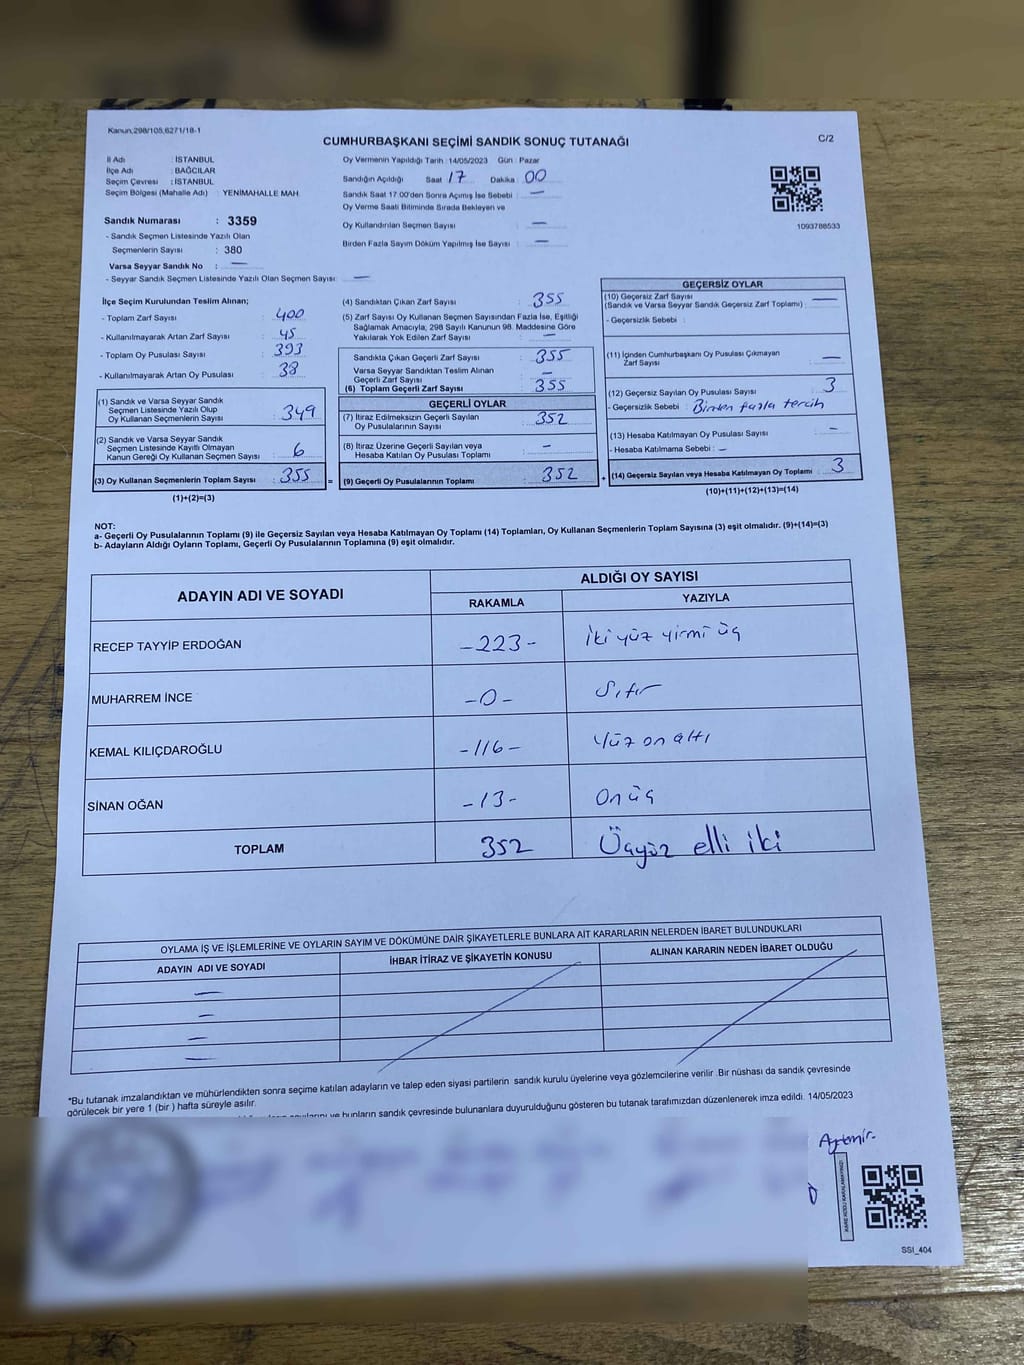 Kanun.298/105,6271/18-1
CUMHURBAŞKANI SEÇİMİ SANDIK SONUÇ TUTANAĞI
C/2
İl Adı : İSTANBUL
İlçe Adı : BAĞCILAR
Seçim Çevresi : İSTANBUL
Seçim Bölgesi (Mahalle Adı) : YENİMAHALLE MAH.
Sandık Numarası : 3359
- Sandık Seçmen Listesinde Yazılı Olan
Seçmenlerin Sayısı : 380
Varsa Seyyar Sandık No : —
- Seyyar Sandık Seçmen Listesinde Yazılı Olan Seçmen Sayısı: —
Oy Vermenin Yapıldığı Tarih : 14/05/2023 Gün : Pazar
Sandığın Açıldığı Saat 17 Dakika 00
Sandık Saat 17.00'den Sonra Açımış İse Sebebi : —
Oy Verme Saati Bitiminde Sırada Bekleyen ve
Oy Kullandırılan Seçmen Sayısı : —
Birden Fazla Sayım Döküm Yapılmış İse Sayısı : —
1093788533
İlçe Seçim Kurulundan Teslim Alınan;
- Toplam Zarf Sayısı : 400
- Kullanılmayarak Artan Zarf Sayısı : 45
- Toplam Oy Pusulası Sayısı : 393
- Kullanılmayarak Artan Oy Pusulası : 38
(1) Sandık ve Varsa Seyyar Sandık
Seçmen Listesinde Yazılı Olup
Oy Kullanan Seçmenlerin Sayısı : 349
(2) Sandık ve Varsa Seyyar Sandık
Seçmen Listesinde Kayıtlı Olmayan
Kanun Gereği Oy Kullanan Seçmen Sayısı : 6
(3) Oy Kullanan Seçmenlerin Toplam Sayısı : 355 =
(1)+(2)=(3)
(4) Sandıktan Çıkan Zarf Sayısı : 355
(5) Zarf Sayısı Oy Kullanan Seçmen Sayısından Fazla İse, Eşitliği
Sağlamak Amacıyla, 298 Sayılı Kanunun 98. Maddesine Göre
Yakılarak Yok Edilen Zarf Sayısı : —
Sandıkta Çıkan Geçerli Zarf Sayısı : 355
Varsa Seyyar Sandıktan Teslim Alınan
Geçerli Zarf Sayısı : —
(6) Toplam Geçerli Zarf Sayısı : 355
GEÇERLİ OYLAR
(7) İtiraz Edilmeksizin Geçerli Sayılan
Oy Pusulalarının Sayısı : 352
(8) İtiraz Üzerine Geçerli Sayılan veya
Hesaba Katılan Oy Pusulası Toplamı : —
(9) Geçerli Oy Pusulalarının Toplamı : 352 +
GEÇERSİZ OYLAR
(10) Geçersiz Zarf Sayısı
(Sandık ve Varsa Seyyar Sandık Geçersiz Zarf Toplamı) : —
- Geçersizlik Sebebi :
(11) İçinden Cumhurbaşkanı Oy Pusulası Çıkmayan
Zarf Sayısı : —
(12) Geçersiz Sayılan Oy Pusulası Sayısı : 3
- Geçersizlik Sebebi : Birden fazla tercih
(13) Hesaba Katılmayan Oy Pusulası Sayısı : —
- Hesaba Katılmama Sebebi : —
(14) Geçersiz Sayılan veya Hesaba Katılmayan Oy Toplamı : 3
(10)+(11)+(12)+(13)=(14)
NOT:
a- Geçerli Oy Pusulalarının Toplamı (9) ile Geçersiz Sayılan veya Hesaba Katılmayan Oy Toplamı (14) Toplamları, Oy Kullanan Seçmenlerin Toplam Sayısına (3) eşit olmalıdır. (9)+(14)=(3)
b- Adayların Aldığı Oyların Toplamı, Geçerli Oy Pusulalarının Toplamına (9) eşit olmalıdır.
ADAYIN ADI VE SOYADI
ALDIĞI OY SAYISI
RAKAMLA
YAZIYLA
RECEP TAYYİP ERDOĞAN -223- İki yüz yirmi üç
MUHARREM İNCE -0- Sıfır
KEMAL KILIÇDAROĞLU -116- Yüz on altı
SİNAN OĞAN -13- On üç
TOPLAM 352 Üçyüz elli iki
OYLAMA İŞ VE İŞLEMLERİNE VE OYLARIN SAYIM VE DÖKÜMÜNE DAİR ŞİKAYETLERLE BUNLARA AİT KARARLARIN NELERDEN İBARET BULUNDUKLARI
ADAYIN ADI VE SOYADI
İHBAR İTİRAZ VE ŞİKAYETİN KONUSU
ALINAN KARARIN NEDEN İBARET OLDUĞU
—
—
—
—
*Bu tutanak imzalandıktan ve mühürlendikten sonra seçime katılan adayların ve talep eden siyasi partilerin sandık kurulu üyelerine veya gözlemcilerine verilir .Bir nüshası da sandık çevresinde
görülecek bir yere 1 (bir ) hafta süreyle asılır.
ve bunların sandık çevresinde bulunanlara duyurulduğunu gösteren bu tutanak tarafımızdan düzenlenerek imza edildi. 14/05/2023
KARE KODU KARALAMAYINIZ!
SSI_404